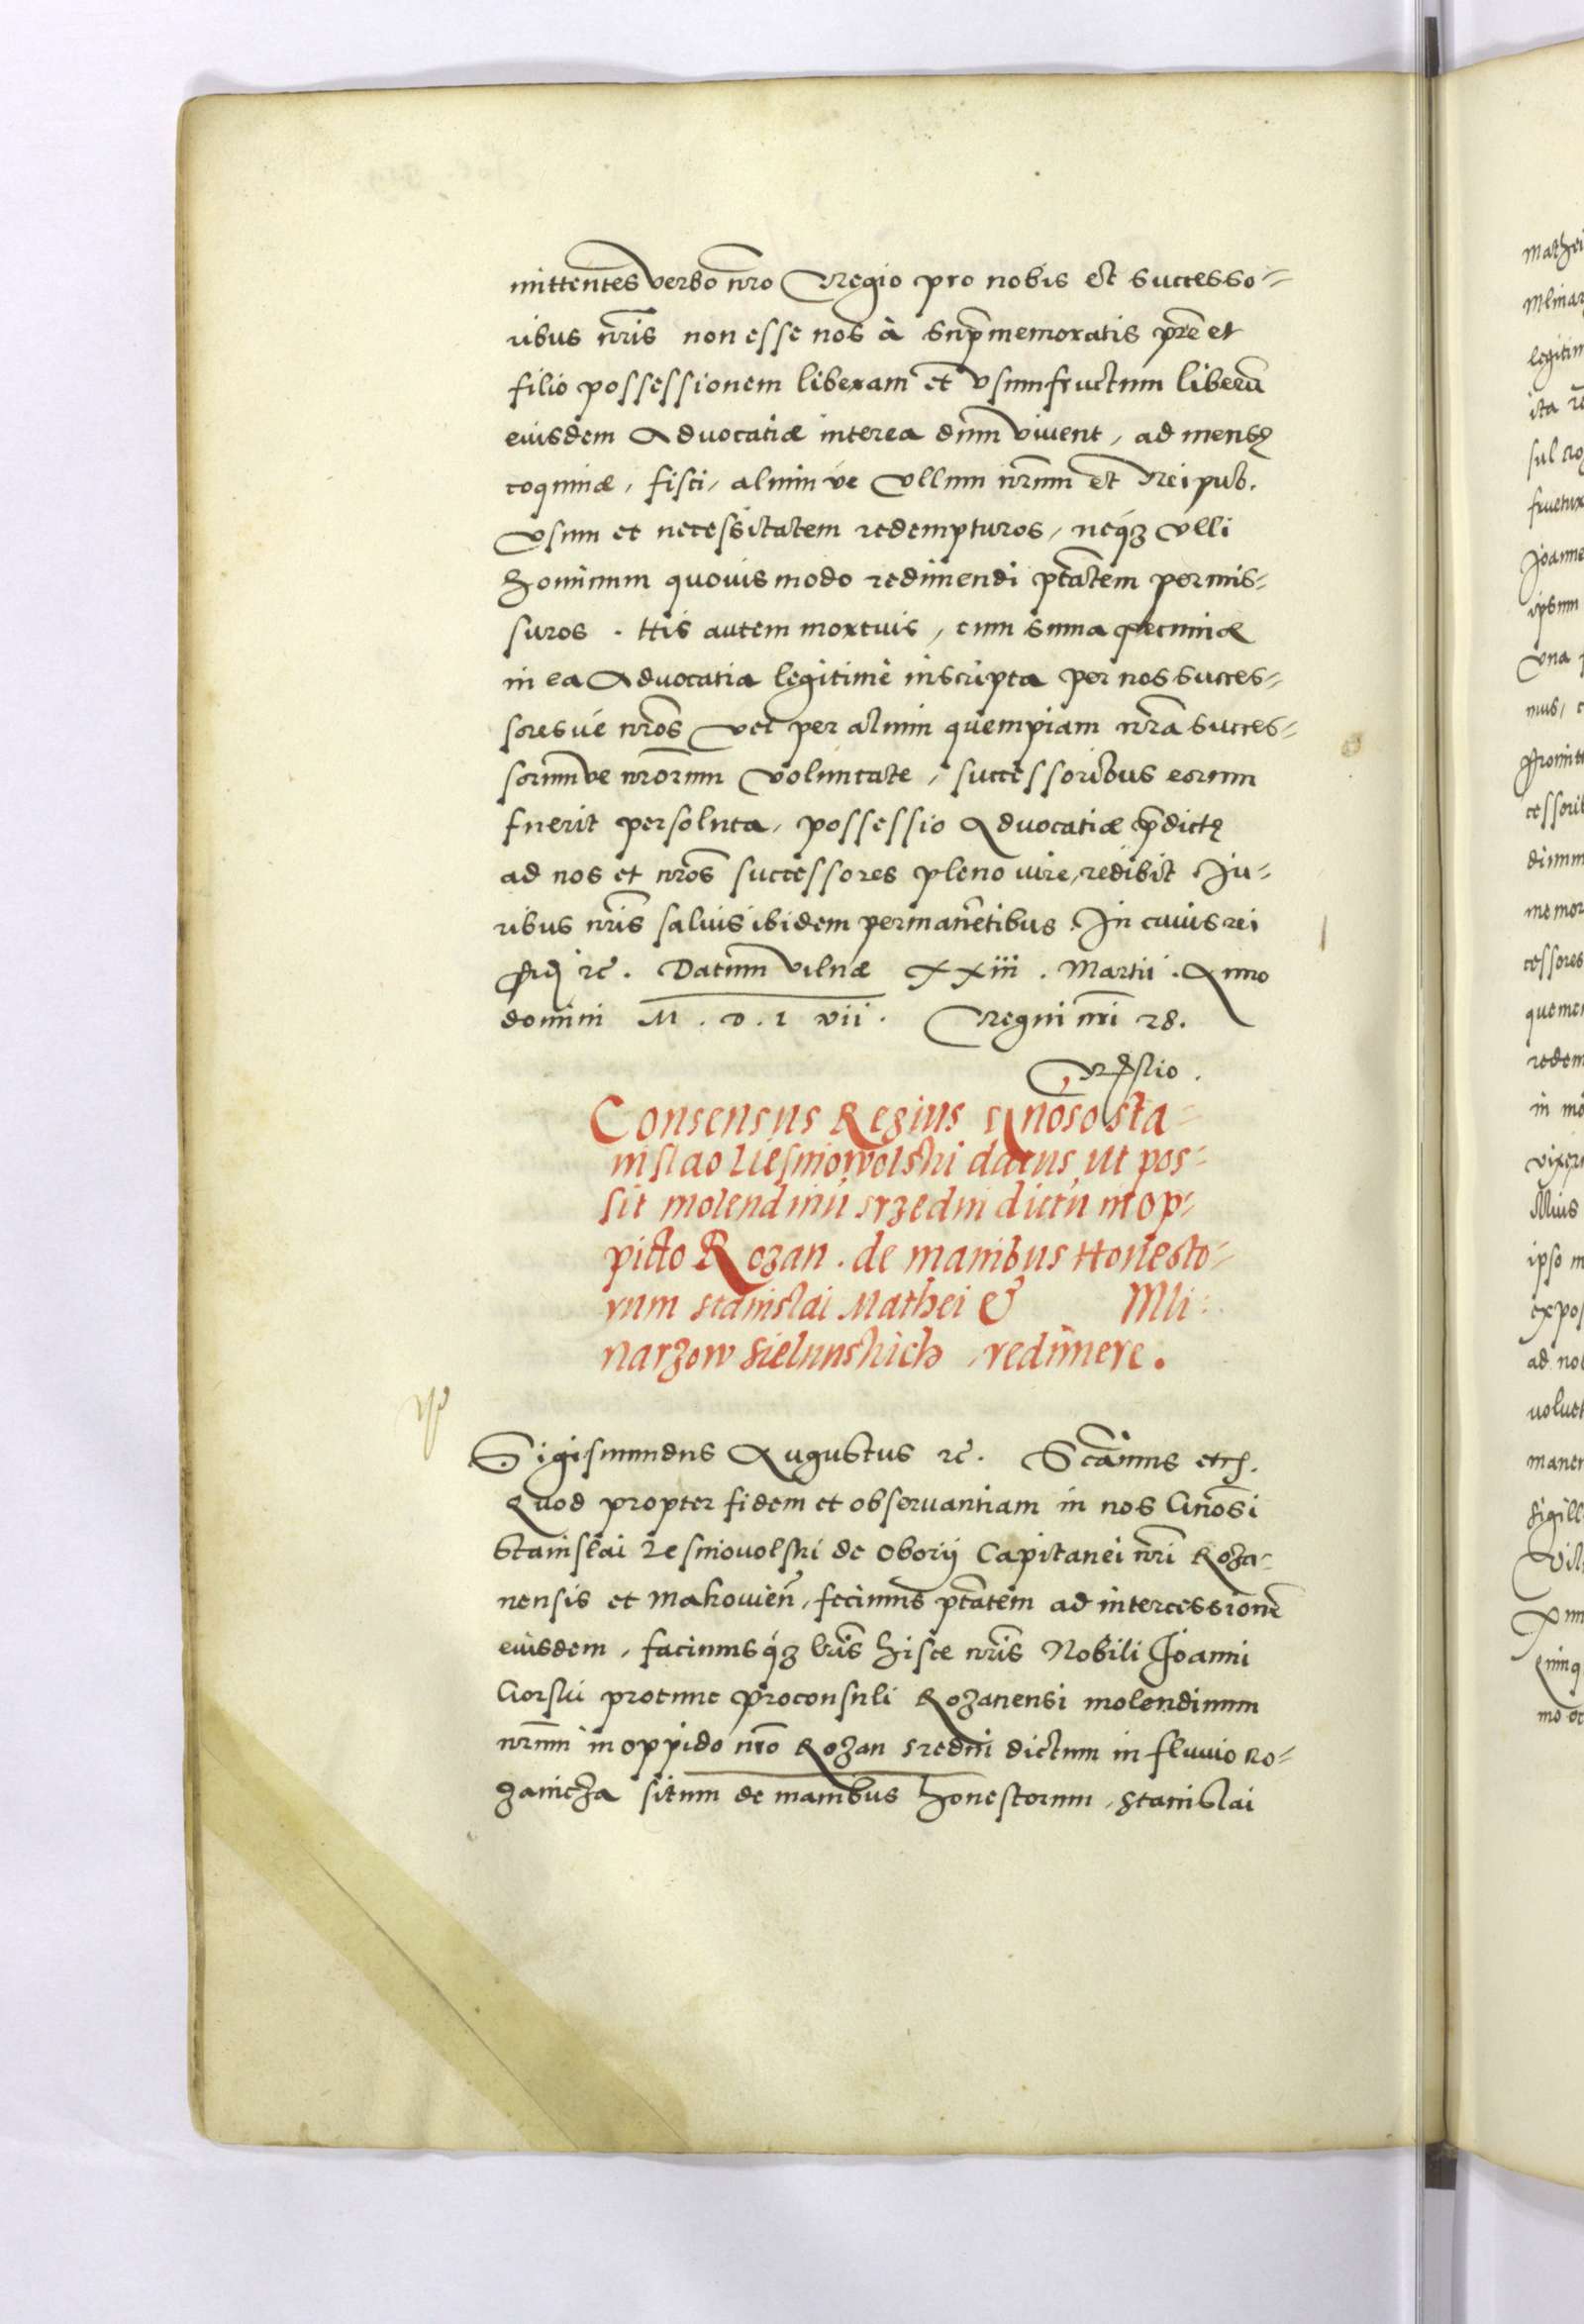 mittentes verbo nro Regio pro nobis et successo=
ribus nris non esse nos à suprmemoratis pre et
filio possessionem liberam et vsumfructum liberũ
eiusdem Aduocatiæ interea dum viuent, ad mensę
coquinæ, fisci, alium ve vllum nrum et Rei pub.
vsum et necessitatem redempturos, neqз vlli
hominum quouis modo redimendi ptatem permis=
suros. His autem mortuis, cum suma pecuniæ
in ea Aduocatia legitime inscripta per nos succes=
soresue nros vel per alium quempiam nra succes=
sorumve nrorum voluntate, successoribus eorum
fuerit persoluta, possessio Aduocatiæ predictę
ad nos et nros successores pleno iure, redibit Iu=
ribus nris saluis ibidem permanẽtibus. In cuius rei
fidẽ ꝛc. Datum vilnæ XXiii. Martii. Anno
domini M. D. L vii. Regni nri 28.
Consensus Regius Gnoso Sta=
nislao Liesniowolski datus, ut pos=
sit molendinũ srzedni dictũ in op=
pido Rozan. de manibus Honesto=
rum stanislai Mathei & Mli=
narzow Sielunskich redimere.
Sigismundus Augustus ꝛc. Scamus etc.
Quod propter fidem et obseruantiam in nos Gnosi
Stanislai Lesniouolski de Oborij Capitanei nri Roza=
nensis et Makouieñ, fecimus ptatem ad intercessionẽ
eiusdem, facimusqз lris hisce nris Nobili Joanni
Gorski protunc proconsuli Rozanensi molendinum
nrum in oppido nro Rozan sredni dictum in fluuio Ro=
zanicza situm de manibus honestorum, Stanislai